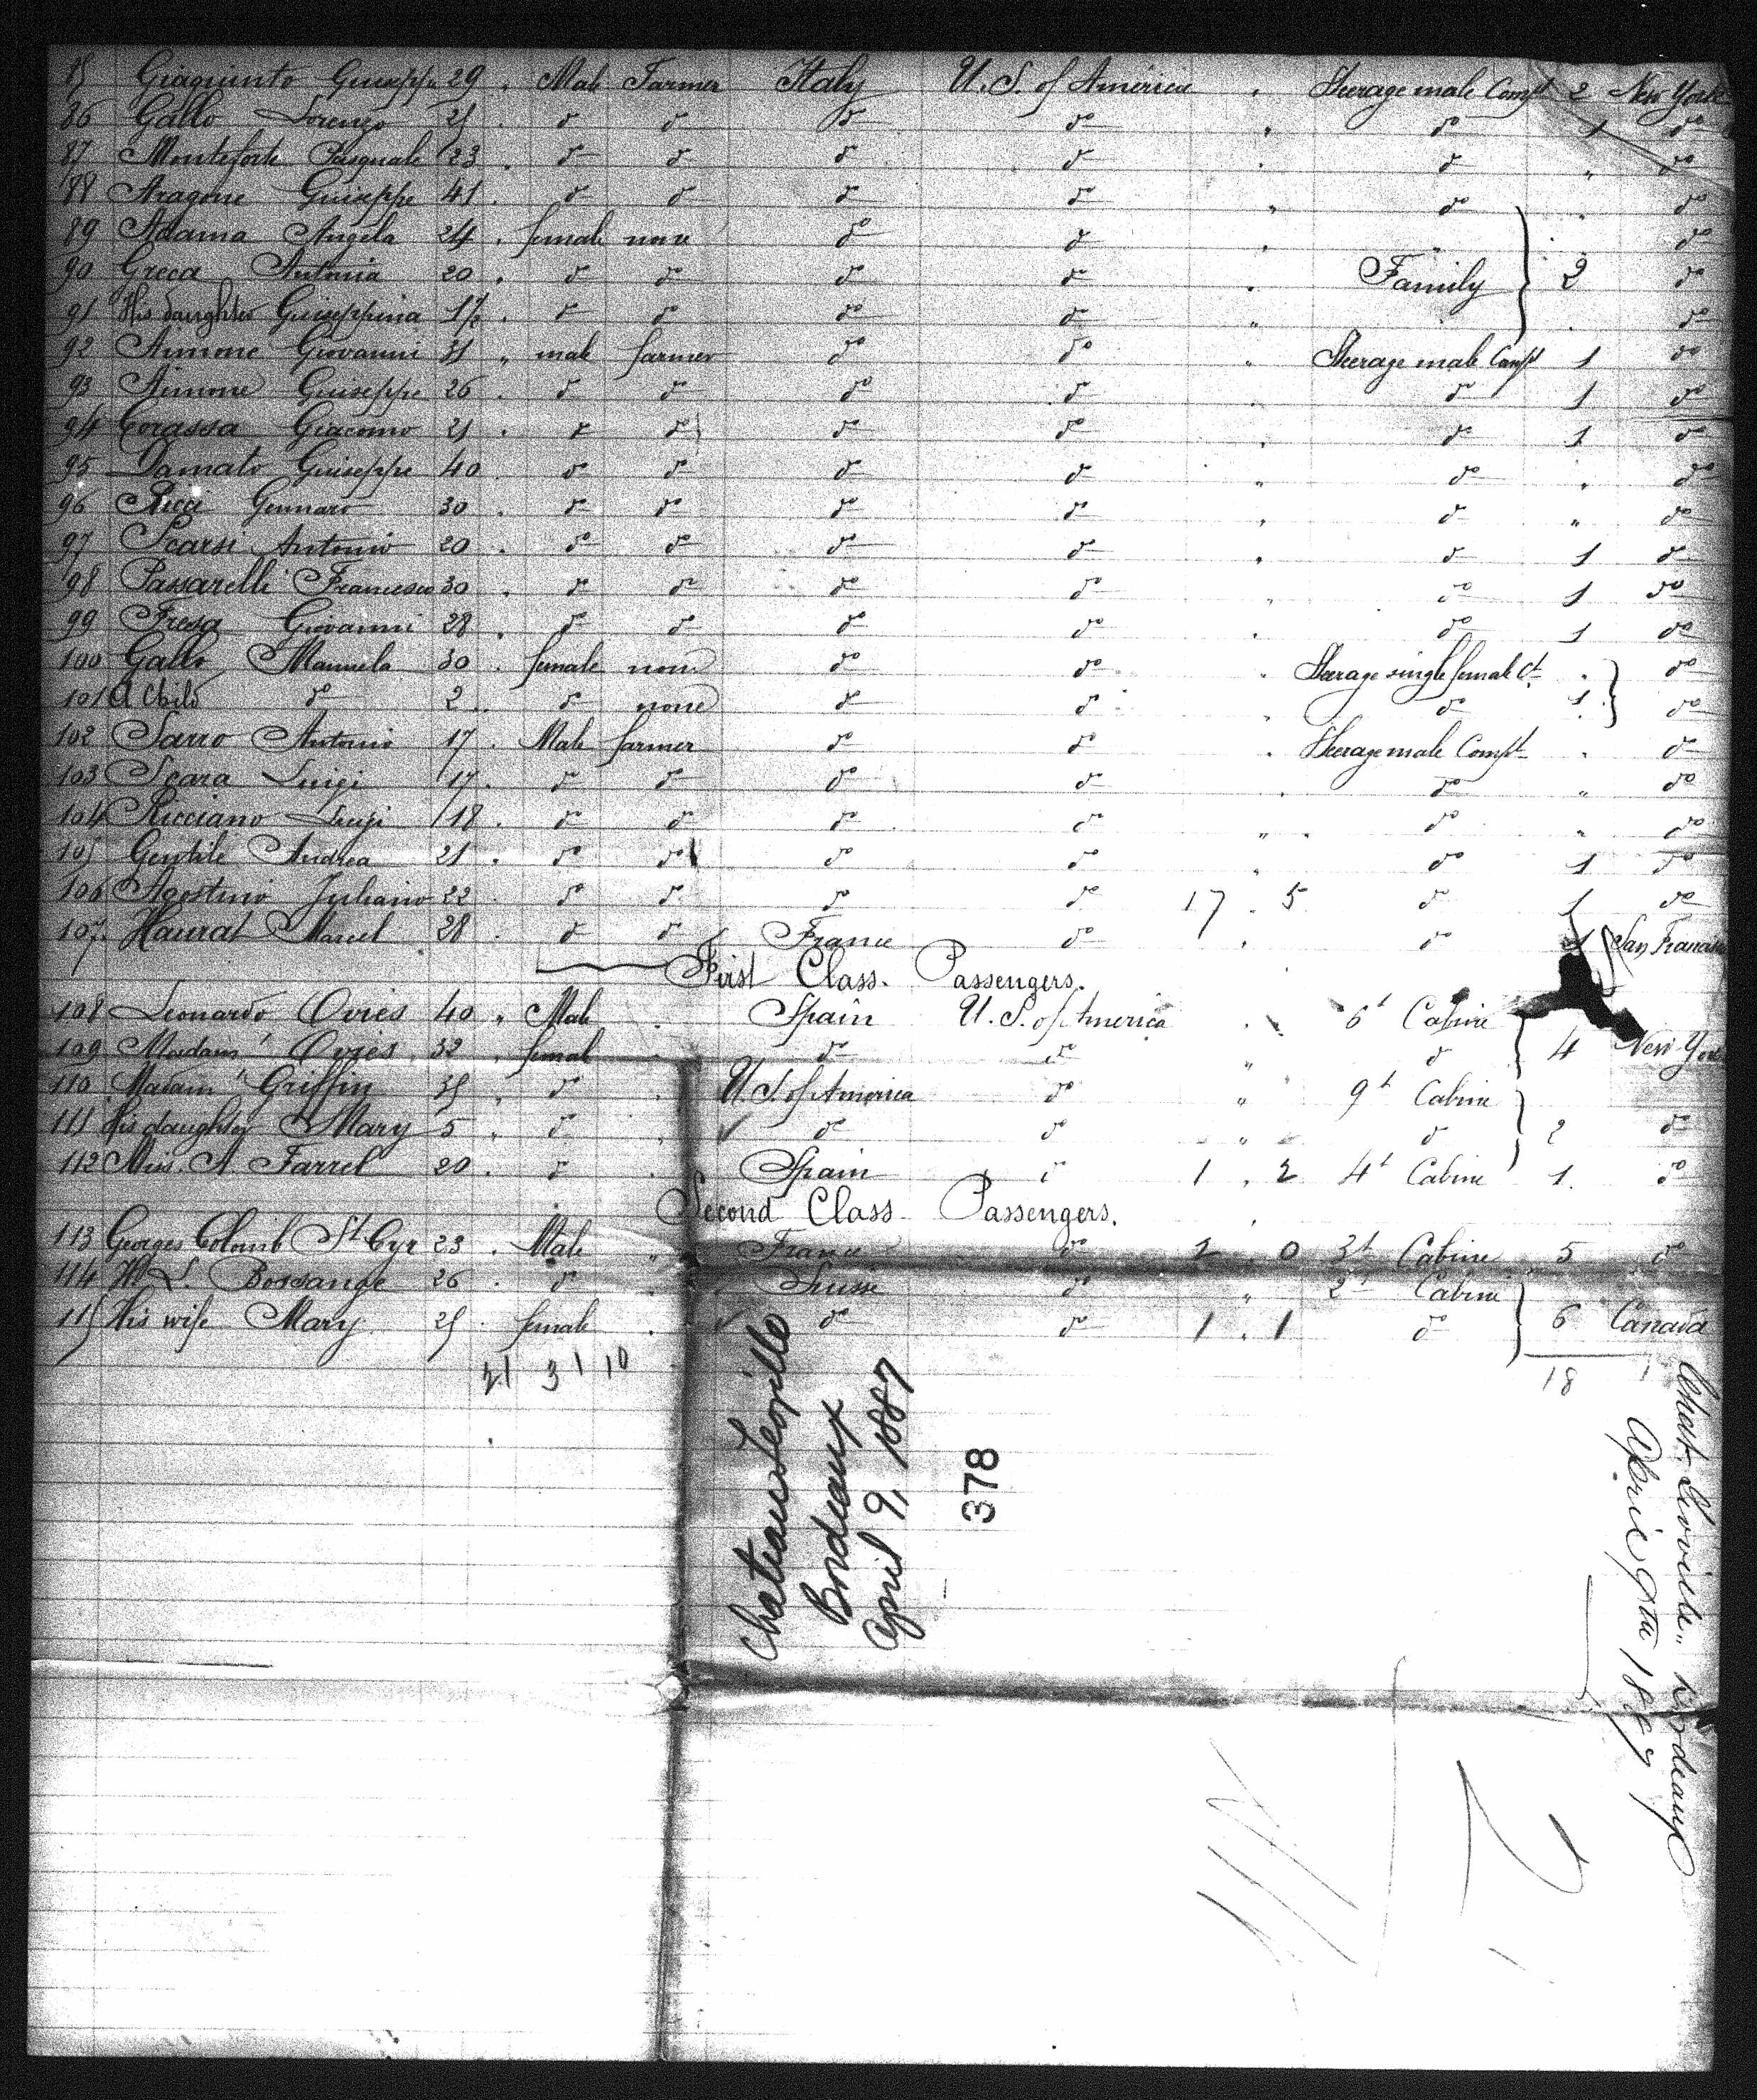 85 Giaquinto Giuseppe 29 . Male Farmer Italy U. S. of América . Steerage male Compt 2 New York
86 Gallo Lorenzo 25 . do do do do " do 1 do
87 Monteforte Pasquale 23 . do do do do . do " do
88 Aragone Guiseppe 41 . do do do do " do . do
89 Adama Angéla 24 . female none do do " " . do
90 Greca Antonia 20 . do do do do . Family 2 do
91 His daughter Guiseppina 1½ . do do do do " . do
92 Aimone Giovanni 35 " male farmer do do " Steerage male Compt 1 do
93 Aimone Guiseppe 26 . do do do do do 1 do
94 Corassa Giacomo 25 . do do do do . do 1 do
95 Damato Guiseppe 40 do do do do " do . do
96 Ricci Gennaro 30 . do do do do " do " do
97 Scarsi Antonio 20 . do do do do . do 1 do
98 Passarelli Francesco 30 . do do do do . do 1 do
99 Fresa Giovanni 28 . do do do do . do 1 do
100 Gallo Manuela 30 . female none do do . Steerage single female Ct . do
101 A Child do 2 . do none do do . do 1 do
102 Sarro Antonio 17 . Male farmer do do . Steerage male Compt . do
103 Scara Luigi 17 . do do do do . do " do
104 Ricciano Luigi 18 . do do do do " . do " do
105 Gentile Andréa 21 . do do do do . do 1 do
106 Agostino Juliano 22 . do do do do 17 . 5 do 1 do
107 Haurat Marcel 28 . do do France do . do 1 San Francisco
First Class. Passengers.
108 Leonardo Ovies 40 " Male . Spain U. S. of America . 6t Cabine
109 Madam' Ovies 32 . femal . do do " do 4 New York
110 Madam' Griffin 35 " do . U. S. of América do " 9t Cabine
111 His daughter Mary 5 " do " do do " do 2 do
112 Miss A Farrel 20 . do . Spain do 1 . 2 4t Cabine 1. do
Second Class Passengers.
113 Georges Colomb St Cyr 23 . Male " France do 2 . 0 3t Cabine 5 do
114 L. Bossange 26 . do . Suisse do " 2t Cabine
115 His wife Mary 25 . female . do do 1 . 1 do 6 Canada
21 31 10
18
Chateau Leoville
Bordeaux
April 9, 1887
378
Chat. Leoville" Bordeaux
April 9th 1887